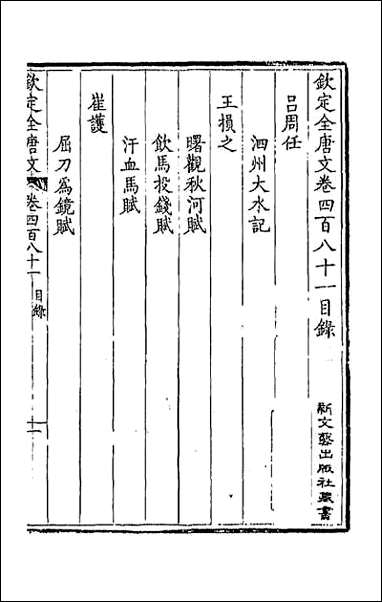 欽定全唐文卷四百八十一目錄
新文藝出版社藏書
呂周任
泗州大水記
王損之
曙觀秋河賦
飲馬投錢賦
汗血馬賦
崔護
屈刀爲鏡賦
欽定全唐文 卷四百八十一 目錄 一